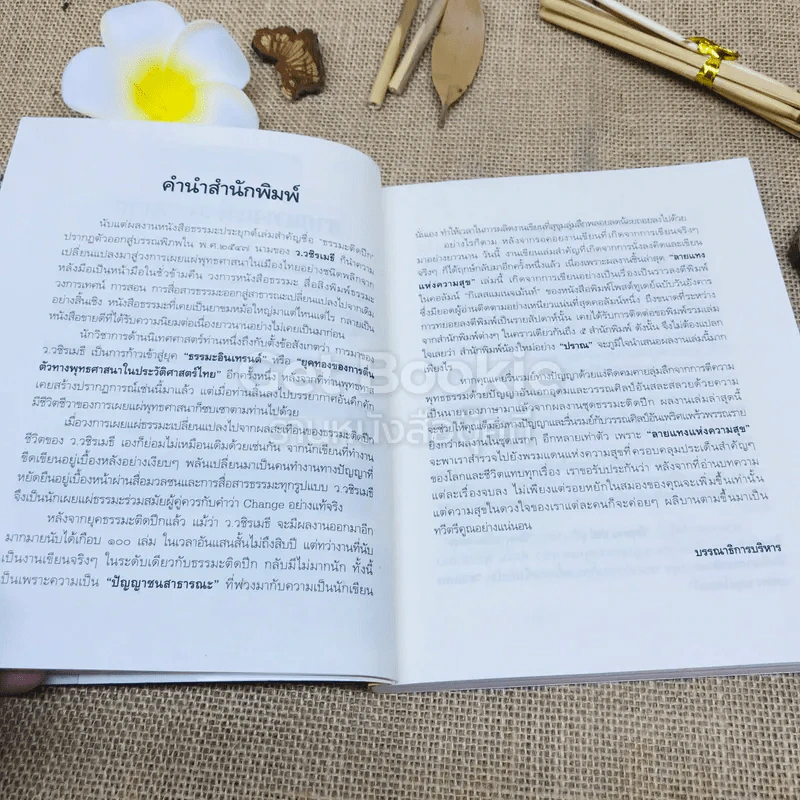 คำนำสำนักพิมพ์
นับแต่ผลงานหนังสือธรรมะประยุกต์เล่มสำคัญชื่อ “ธรรมะติดปีก”
ปรากฏตัวออกสู่บรรณพิภพใน พ.ศ.๒๕๔๗ นามของ ว.วชิรเมธี ก็นำความ
เปลี่ยนแปลงมาสู่วงการเผยแผ่พุทธศาสนาในเมืองไทยอย่างชนิดพลิกจาก
หลังมือเป็นหน้ามือในชั่วข้ามคืน วงการหนังสือธรรมะ สื่อสิ่งพิมพ์ธรรมะ
วงการเทศน์ การสอน การสื่อสารธรรมะออกสู่สาธารณะเปลี่ยนแปลงไปจากเดิม
อย่างสิ้นเชิง หนังสือธรรมะที่เคยเป็นยาขมหม้อใหญ่มาแต่ไหนแต่ไร กลายเป็น
หนังสือขายดีที่ได้รับความนิยมต่อเนื่องยาวนานอย่างไม่เคยเป็นมาก่อน
นักวิชาการด้านนิเทศศาสตร์ท่านหนึ่งถึงกับตั้งข้อสังเกตว่า การมาของ
ว.วชิรเมธี เป็นการก้าวเข้าสู่ยุค “ธรรมะอินเทรนด์” หรือ “ยุคทองของการตื่น
ตัวทางพุทธศาสนาในประวัติศาสตร์ไทย” อีกครั้งหนึ่ง หลังจากที่ท่านพุทธทาส
เคยสร้างปรากฏการณ์เช่นนี้มาแล้ว แต่เมื่อท่านล้นสงไปบรรยากาศอันคึกคัก
มีชีวิตชีวาของการเผยแผ่พุทธศาสนาก็ซบเซาตามท่านไปด้วย
เมื่อวงการเผยแผ่ธรรมะเปลี่ยนแปลงไปจากผลสะเทือนของธรรมะติดปีก
ชีวิตของ ว.วชิรเมธี เองก็ย่อมไม่เหมือนเดิมด้วยเช่นกัน จากนักเขียนที่ทำงาน
ขีดเขียนอยู่เบื้องหลังอย่างเงียบๆ พลันเปลี่ยนมาเป็นคนทำงานทางปัญญาที่
หยัดยืนอยู่เบื้องหน้าผ่านสื่อมวลชนและการสื่อสารธรรมะทุกรูปแบบ ว.วชิรเมธี
จึงเป็นนักเผยแผ่ธรรมะร่วมสมัยผู้คู่ควรกับคำว่า Change อย่างแท้จริง
หลังจากยุคธรรมะติดปีกแล้ว แม้ว่า ว.วชิรเมธี จะมีผลงานออกมาอีก
มากมายนับได้เกือบ ๑๐๐ เล่ม ในเวลาอันแสนสั้นไม่ถึงสิบปี แต่ทว่างานที่นับ
เป็นงานเขียนจริงๆ ในระดับเดียวกับธรรมะติดปีก กลับมีไม่มากนัก ทั้งนี้
เป็นเพราะความเป็น “ปัญญาชนสาธารณะ” ที่พ่วงมากับความเป็นนักเขียน
นั่นเอง ทำให้เวลาในการผลิตงานเขียนที่สุขุมลุ่มลึกพลอยลดน้อยถอยลงไปด้วย
อย่างไรก็ตาม หลังจากรอคอยงานเขียนที่เกิดจากการเขียนจริงๆ
มาอย่างยาวนาน วันนี้ งานเขียนเล่มสำคัญที่เกิดจากการนั่งลงคิดและเขียน
จริงๆ ก็ได้ฤกษ์กลับมาอีกครั้งหนึ่งแล้ว เนื่องเพราะผลงานชิ้นล่าสุด “ลายแทง
แห่งความสุข” เล่มนี้ เกิดจากการเขียนอย่างเป็นเรื่องเป็นราวลงตีพิมพ์
ในคอลัมน์ “กิเลสแมเนจเม้นท์” ของหนังสือพิมพ์โพสต์ทูเดย์ฉบับวันอังคาร
ซึ่งมียอดผู้อ่านติดตามอย่างเหนียวแน่นที่สุดคอลัมน์หนึ่ง ถึงขนาดที่ระหว่าง
การทยอยลงตีพิมพ์เป็นรายสัปดาห์นั้น เคยได้รับการติดต่อขอพิมพ์รวมเล่ม
จากสำนักพิมพ์ต่างๆ ในคราวเดียวกันถึง ๕ สำนักพิมพ์ ดังนั้น จึงไม่ต้องแปลก
ใจเลยว่า สำนักพิมพ์น้องใหม่อย่าง “ปราณ” จะภูมิใจนำเสนอผลงานเล่มนี้มาก
เพียงไร
หากคุณเคยรื่นรมย์กับปัญญาด้วยแง่คิดคมคายลุ่มลึกจากการตีความ
พุทธธรรมด้วยปัญญาอันเอกอุดมและวรรณศิลป์อันสละสลวยด้วยความ
เป็นนายของภาษามาแล้วจากผลงานชุดธรรมะติดปีก ผลงานเล่มล่าสุดนี้
จะช่วยให้คุณดื่มด่ำทางปัญญาและรื่นรมย์กับวรรณศิลป์อันเพริศแพร้วพรรณราย
ยิ่งกว่าผลงานในชุดแรกๆ อีกหลายเท่าตัว เพราะ “ลายแทงแห่งความสุข”
จะพาเราสำรวจไปยังพรมแดนแห่งความสุขที่ครอบคลุมประเด็นสำคัญๆ
ของโลกและชีวิตแทบทุกเรื่อง เราขอรับประกันว่า หลังจากที่อ่านบทความ
แต่ละเรื่องจบลง ไม่เพียงแต่รอยหยักในสมองของคุณจะเพิ่มขึ้นเท่านั้น
แต่ความสุขในดวงใจของเราแต่ละคนก็จะค่อยๆ ผลิบานตามขึ้นมาเป็น
ทวีตรีคูณอย่างแน่นอน
บรรณาธิการบริหาร
Get Bookie
ร้านหนังสือเก็ทบุ๊คกี้